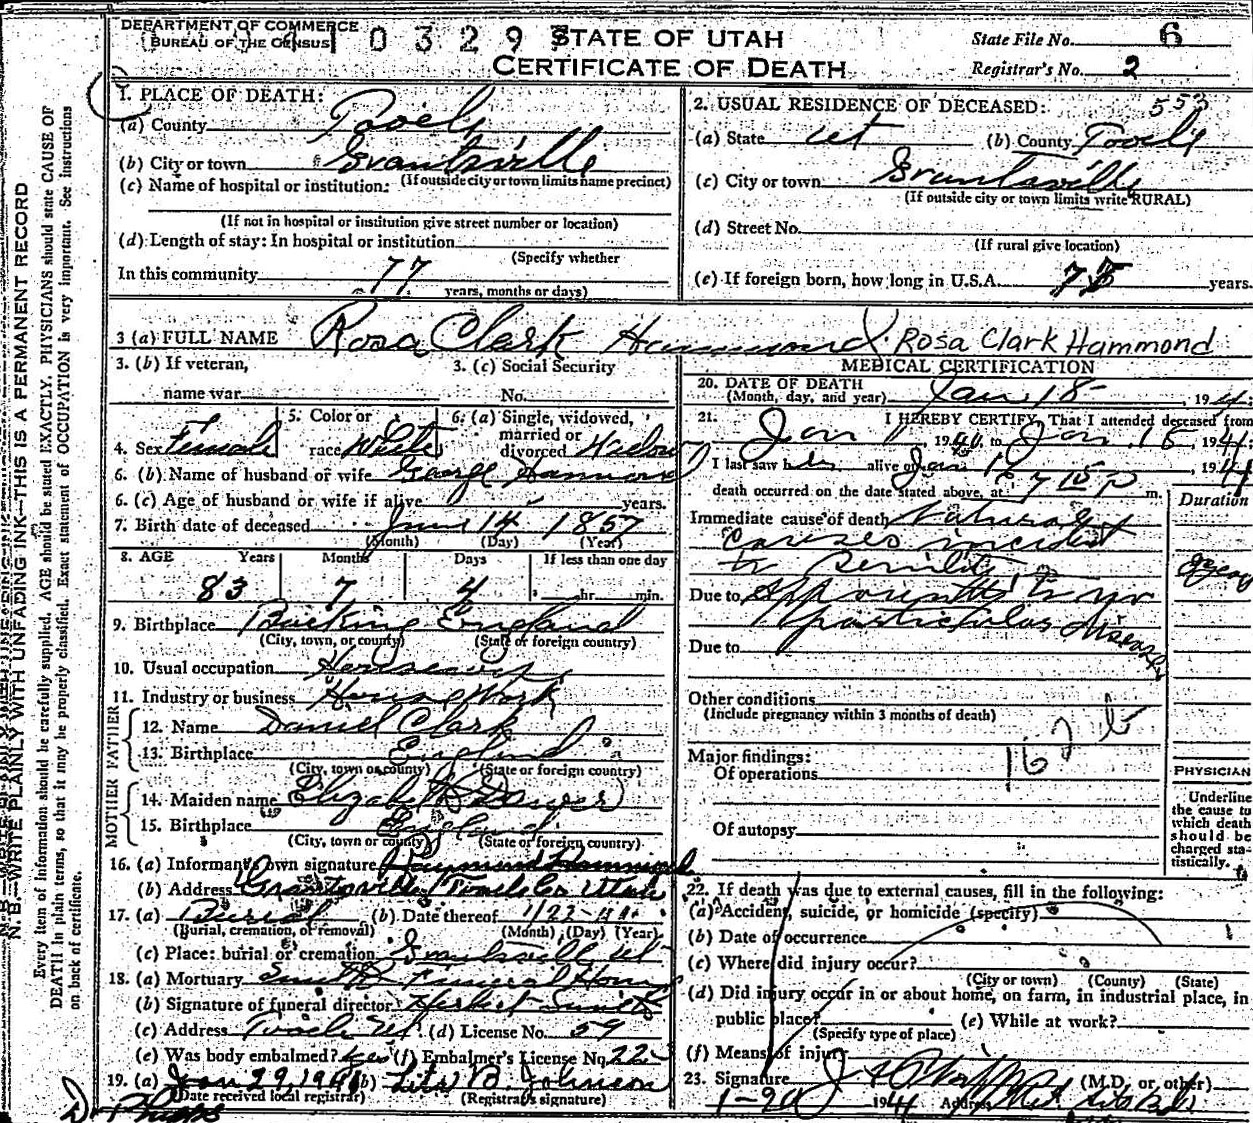 DEPARTMENT OF COMMERCE
BUREAU OF THE CENSUS
0 3 2 9
STATE OF UTAH
CERTIFICATE OF DEATH
State File No. 6
Registrar's No. 2
N. B.—WRITE PLAINLY WITH UNFADING INK—THIS IS A PERMANENT RECORD
Every item of information should be carefully supplied. AGE should be stated EXACTLY. PHYSICIANS should state CAUSE OF
DEATH in plain terms, so that it may be properly classified. Exact statement of OCCUPATION is very important. See instructions
on back of certificate.
1. PLACE OF DEATH:
(a) County Tooele
(b) City or town Grantsville
(If outside city or town limits name precinct)
(c) Name of hospital or institution:
(If not in hospital or institution give street number or location)
(d) Length of stay: In hospital or institution
(Specify whether
In this community 77
years, months or days)
2. USUAL RESIDENCE OF DECEASED:
(a) State Ut (b) County Tooele
(c) City or town Grantsville
(If outside city or town limits write RURAL)
(d) Street No.
(If rural give location)
(e) If foreign born, how long in U.S.A. years.
3 (a) FULL NAME Rosa Clark Hammond Rosa Clark Hammond
3. (b) If veteran,
name war
3. (c) Social Security
No.
4. Sex Female
5. Color or
race White
6. (a) Single, widowed,
married or
divorced Widow
6. (b) Name of husband or wife George Hammond
6. (c) Age of husband or wife if alive years.
7. Birth date of deceased June 14 1857
(Month) (Day) (Year)
8. AGE Years Months Days If less than one day
83 7 4 hr. min.
9. Birthplace Bocking England
(City, town, or county) (State or foreign country)
10. Usual occupation Housewife
11. Industry or business House Work
FATHER
12. Name Daniel Clark
13. Birthplace England
(City, town or county) (State or foreign country)
MOTHER
14. Maiden name Elizabeth
15. Birthplace England
(City, town or county) (State or foreign country)
16. (a) Informant's own signature Haymond Hammond
(b) Address Grantsville Tooele Co Utah
17. (a) Burial (b) Date thereof 1/22-41
(Burial, cremation, or removal) (Month) (Day) (Year)
(c) Place: burial or cremation Grantsville Ut
18. (a) Mortuary Smith Funeral Home
(b) Signature of funeral director Herbert Smith
(c) Address Tooele Ut (d) License No. 59
(e) Was body embalmed? Yes (f) Embalmer's License No. 22
19. (a) Jan 29, 1941 (b) B. Johnson
(Date received local registrar) (Registrar's signature)
Phipps
MEDICAL CERTIFICATION
20. DATE OF DEATH
(Month, day, and year) Jan 18- , 194
21. I HEREBY CERTIFY, That I attended deceased from
Jan 1 1941, to Jan 18, 1941,
I last saw her alive on Jan 1941
death occurred on the date stated above, at 7 15 P m.
Duration
Immediate cause of death Natural
causes incident
to Senility
Due to Apparently no
particular disease
Due to
Other conditions
(Include pregnancy within 3 months of death)
162 b
Major findings:
Of operations
Of autopsy
PHYSICIAN
Underline
the cause to
which death
should be
charged sta-
tistically.
22. If death was due to external causes, fill in the following:
(a) Accident, suicide, or homicide (specify)
(b) Date of occurrence
(c) Where did injury occur?
(City or town) (County) (State)
(d) Did injury occur in or about home, on farm, in industrial place, in
public place? (e) While at work?
(Specify type of place)
(f) Means of injury
23. Signature (M.D. or other)
1-20 1941 Address